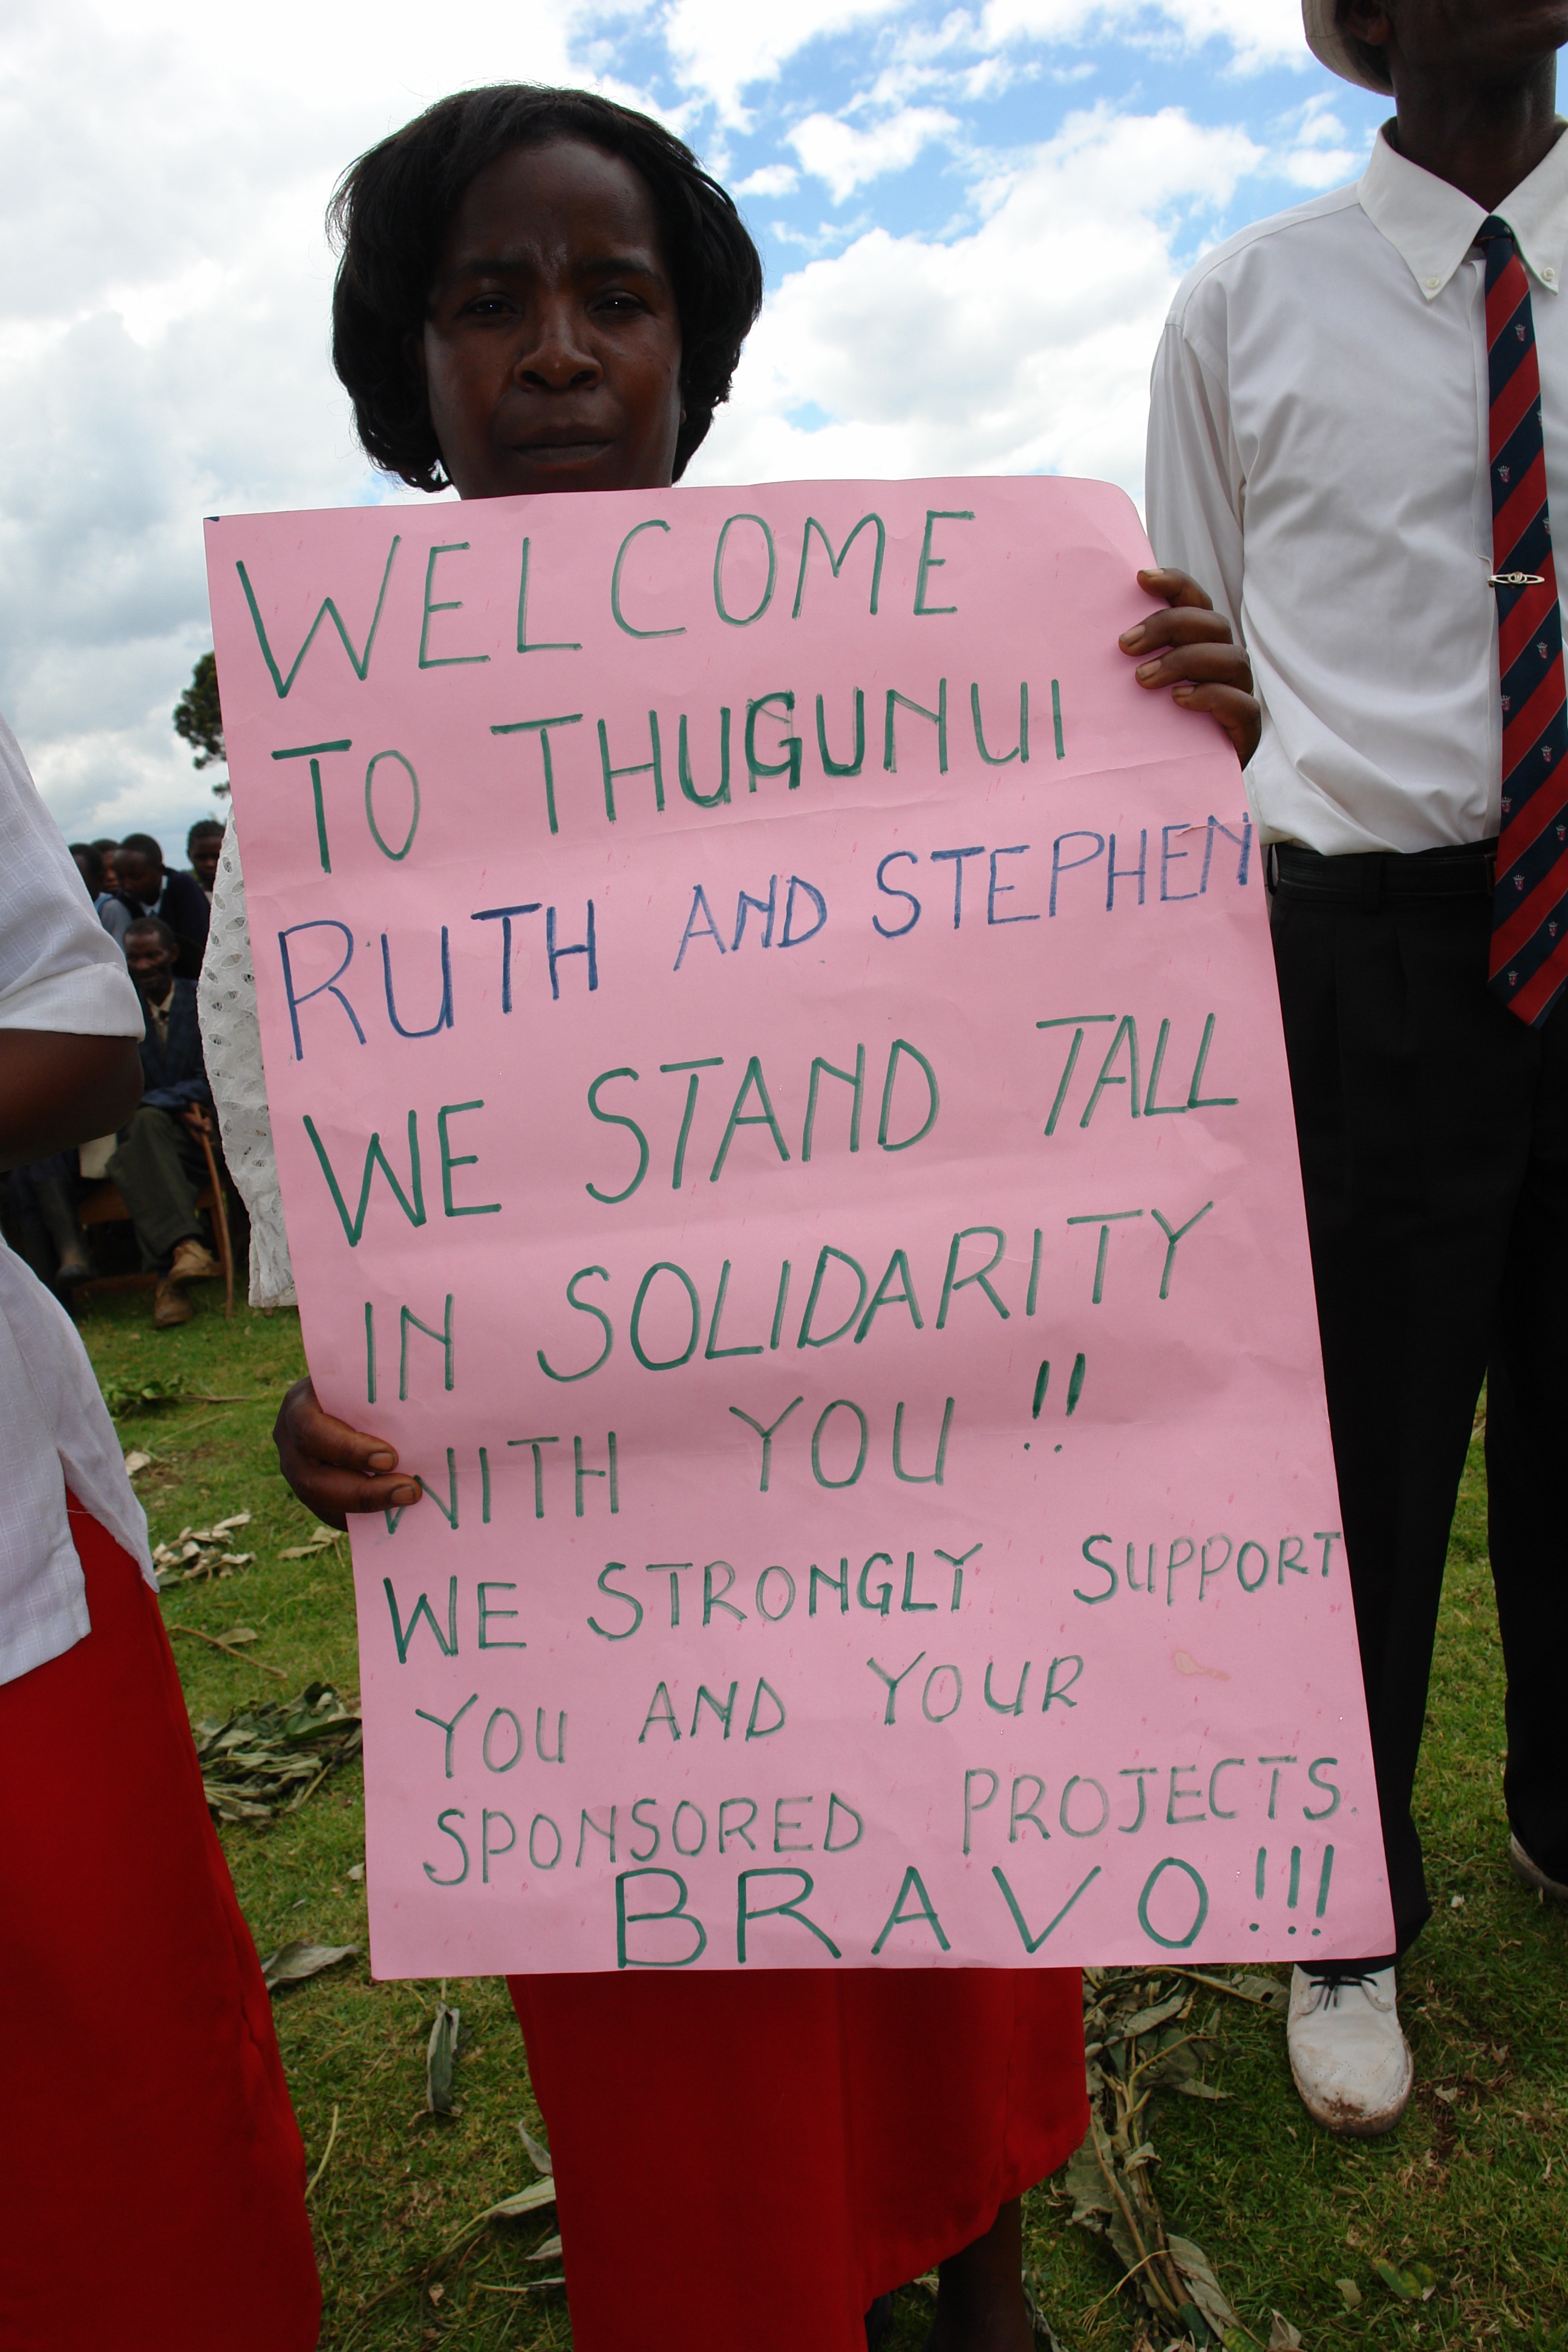 WELCOME
TO THUGUNUI
RUTH AND STEPHEN
WE STAND TALL
IN SOLIDARITY
WITH YOU !!
WE STRONGLY SUPPORT
YOU AND YOUR
SPONSORED PROJECTS.
BRAVO!!!